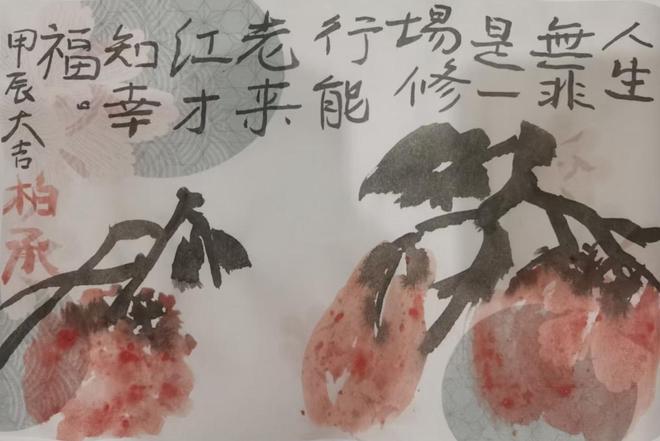 人生
無非
是一
場修
行能
老来
红才
知幸
福。
甲辰大吉
柏承